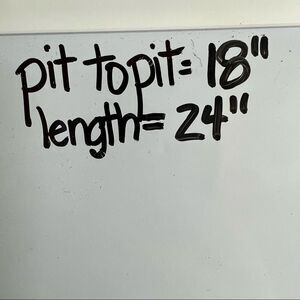 pit to pit= 18"
length= 24"